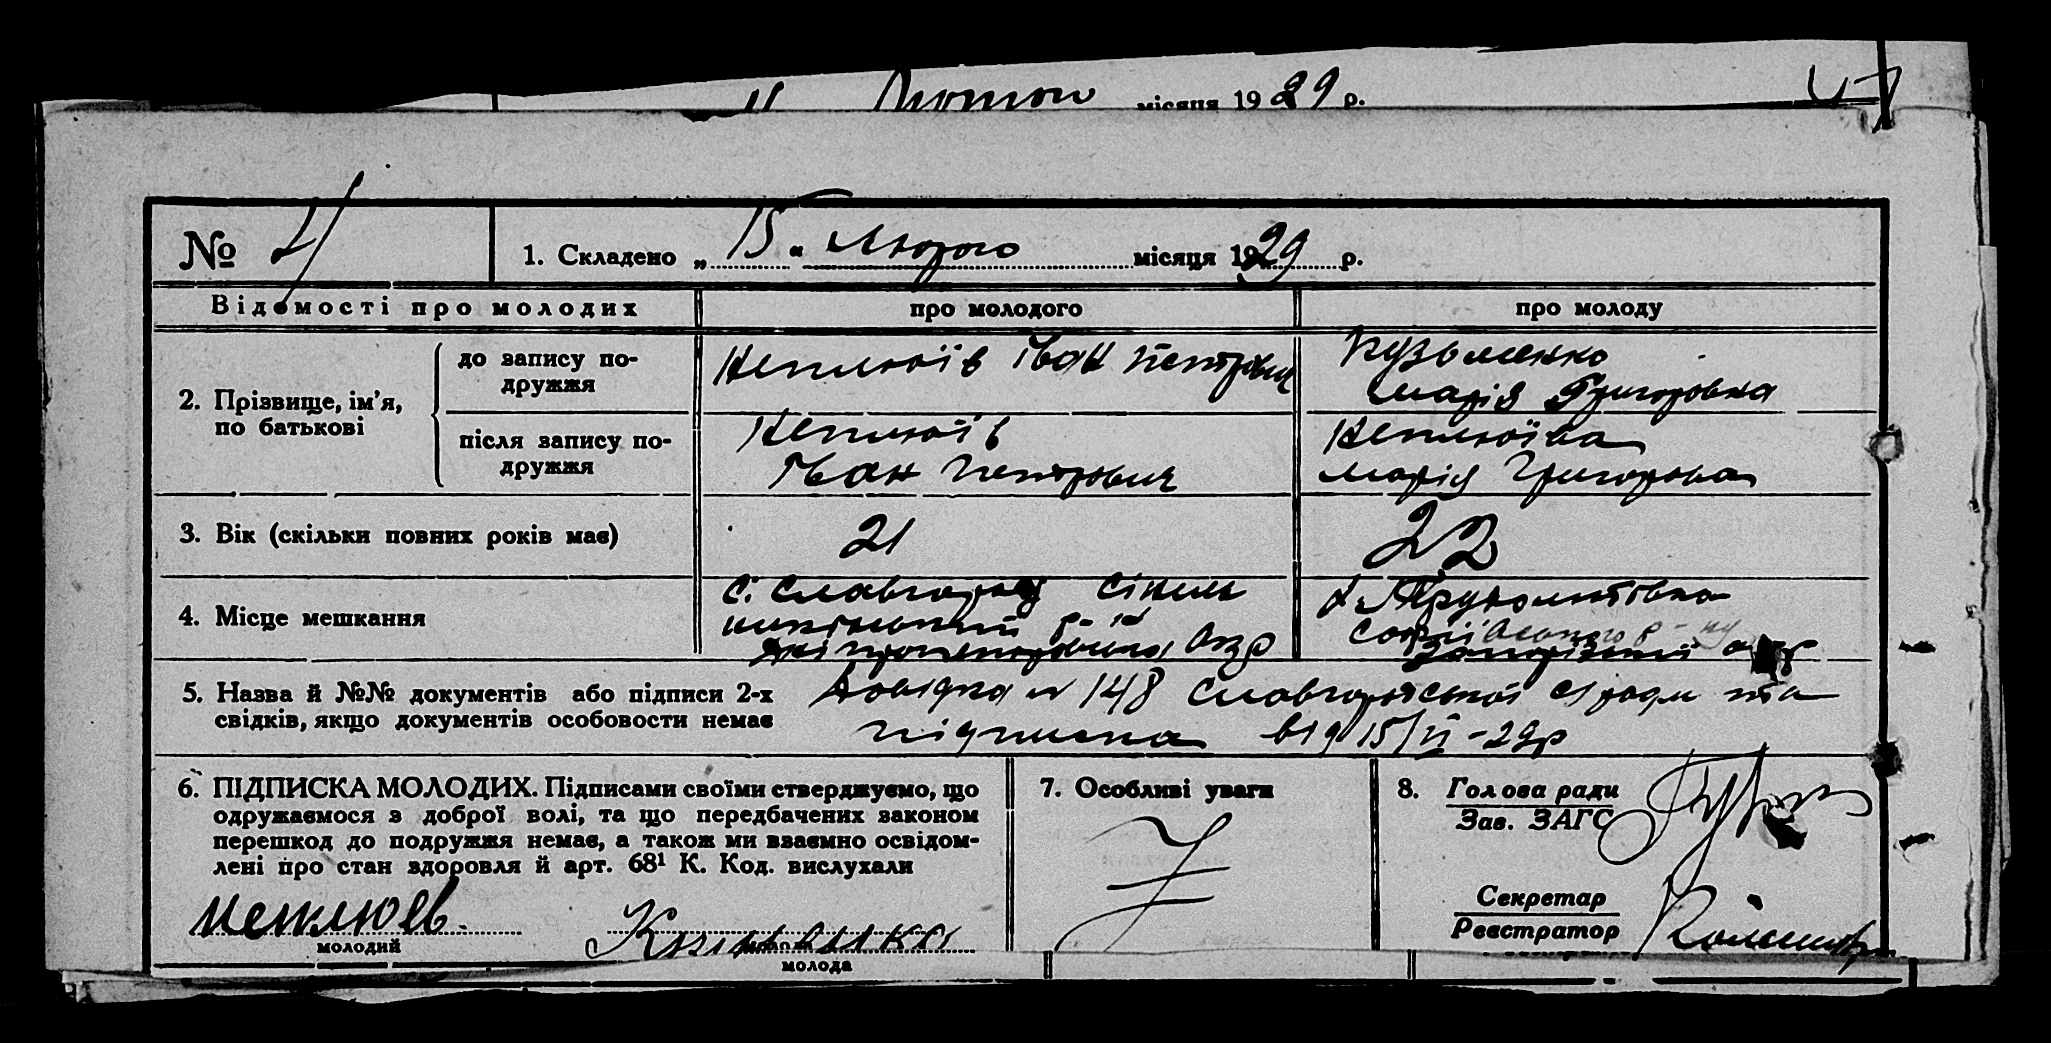 місяця 1929 р.
№ 4
1. Складено „ 15 “ Лютого місяця 1929 р.
Відомості про молодих
про молодого
про молоду
2. Прізвище, ім'я,
по батькові
до запису по-
дружжя
Неплюїв Іван Петрович
Кузьменко
Марія Григоровна
після запису по-
дружжя
Неплюїв
Іван Петрович
Неплюїва
Марія Григоровна
3. Вік (скільки повних років має)
21
22
4. Місце мешкання
с. Славгород Синель
никівський р-н
Дніпропетровська окр
х. Трудолюбівка
Софіївського р-ну
Запорізької окр
5. Назва й №№ документів або підписи 2-х
свідків, якщо документів особовости немає
Довідка № 148 Славгородської с/ради та
підписка від 15/II-29р
6. ПІДПИСКА МОЛОДИХ. Підписами своїми стверджуємо, що
одружаємося з доброї волі, та що передбачених законом
перешкод до подружжя немає, а також ми взаємно освідом-
лені про стан здоровля й арт. 68¹ К. Код. вислухали
Неплюев
молодий
молода
7. Особливі уваги
8. Голова ради
Зав. ЗАГС
Секретар
Реєстратор